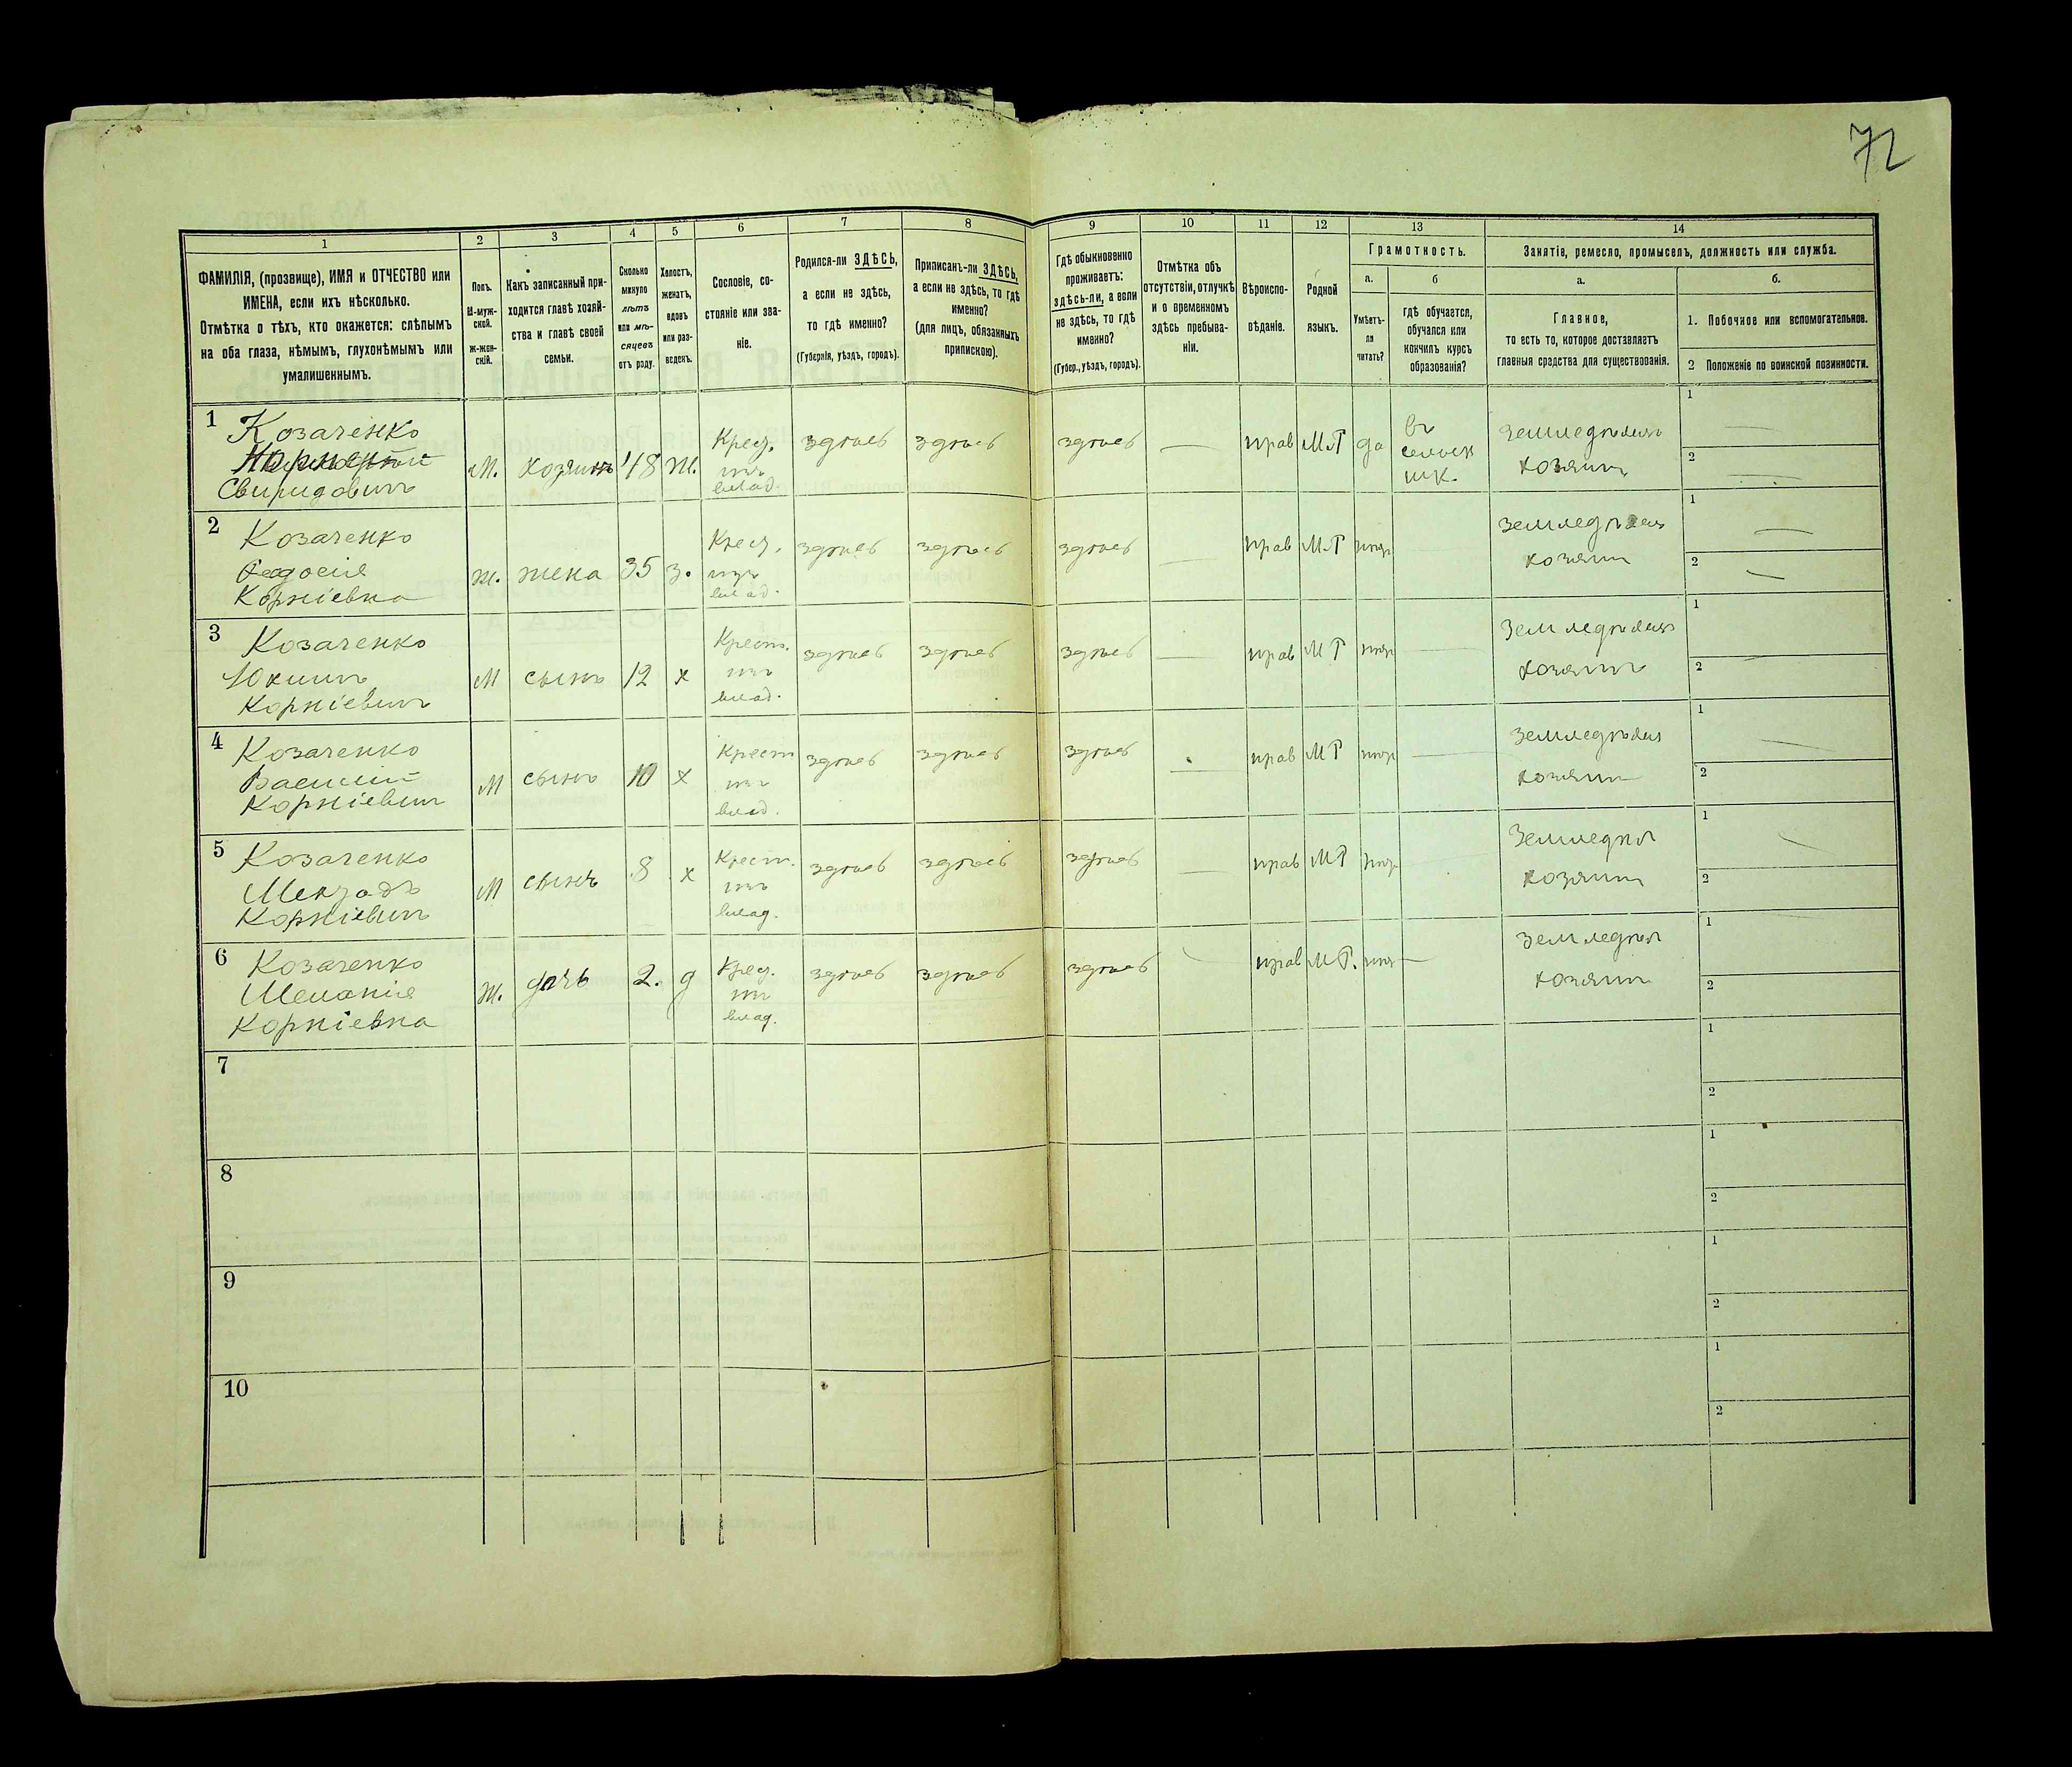 72
1 2 3 4 5 6 7 8 9 10 11 12 13 14
ФАМИЛІЯ, (прозвище), ИМЯ и ОТЧЕСТВО или
ИМЕНА, если ихъ нѣсколько.
Отмѣтка о тѣхъ, кто окажется: слѣпымъ
на оба глаза, нѣмымъ, глухонѣмымъ или
умалишеннымъ.
Полъ.
М-муж-
ской.
Ж-жен-
скій.
Какъ записанный при-
ходится главѣ хозяй-
ства и главѣ своей
семьи.
Сколько
минуло
лѣтъ
или мѣ-
сяцевъ
отъ роду.
Холостъ,
женатъ,
вдовъ
или раз-
веденъ.
Сословіе, со-
стояніе или зва-
ніе.
Родился-ли ЗДѢСЬ,
а если не здѣсь,
то гдѣ именно?
(Губернія, уѣздъ, городъ).
Приписанъ-ли ЗДѢСЬ,
а если не здѣсь, то гдѣ
именно?
(для лицъ, обязанныхъ
припискою).
Гдѣ обыкновенно
проживаетъ:
здѣсь-ли, а если
не здѣсь, то гдѣ
именно?
(Губер., уѣздъ, городъ).
Отмѣтка объ
отсутствіи, отлучкѣ
и о временномъ
здѣсь пребыва-
ніи.
Вѣроиспо-
вѣданіе.
Родной
языкъ.
Грамотность.
а.
Умѣетъ-
ли
читать?
б
гдѣ обучается,
обучался или
кончилъ курсъ
образованія?
Занятіе, ремесло, промыселъ, должность или служба.
а.
Главное,
то есть то, которое доставляетъ
главныя средства для существованія.
б.
1. Побочное или вспомогательное.
2 Положеніе по воинской повинности.
1 Козаченко
Свиридовичъ
М. хозяинъ 48 ж.
влад.
здѣсь здѣсь здѣсь — прав МР да
въ
сельск
шк.
хозяинъ
1
2
2 Козаченко
Феодосія
Корніевна
ж. жена 35 з.
влад.
здѣсь здѣсь здѣсь — прав МР
хозяин
1
2
3 Козаченко
Корніевичъ
М сынъ 12 х
Крест.
изъ
влад.
здѣсь здѣсь здѣсь — прав МР
хозяинъ
1
2
4 Козаченко
Василий
Корніевичъ
М сынъ 10 х
Крест
изъ
влад.
здѣсь здѣсь здѣсь — прав МР
хозяин
1
2
5 Козаченко
Корніевичъ
М сынъ 8 х
Крест.
изъ
влад.
здѣсь здѣсь здѣсь — прав МР
Земледѣл
хозяин
1
2
6 Козаченко
Меланія
Корніевна
ж. дочь 2. д
изъ
влад.
здѣсь здѣсь здѣсь — прав МР.
земледѣл
хозяин
1
2
7
1
2
8
1
2
9
1
2
10
1
2